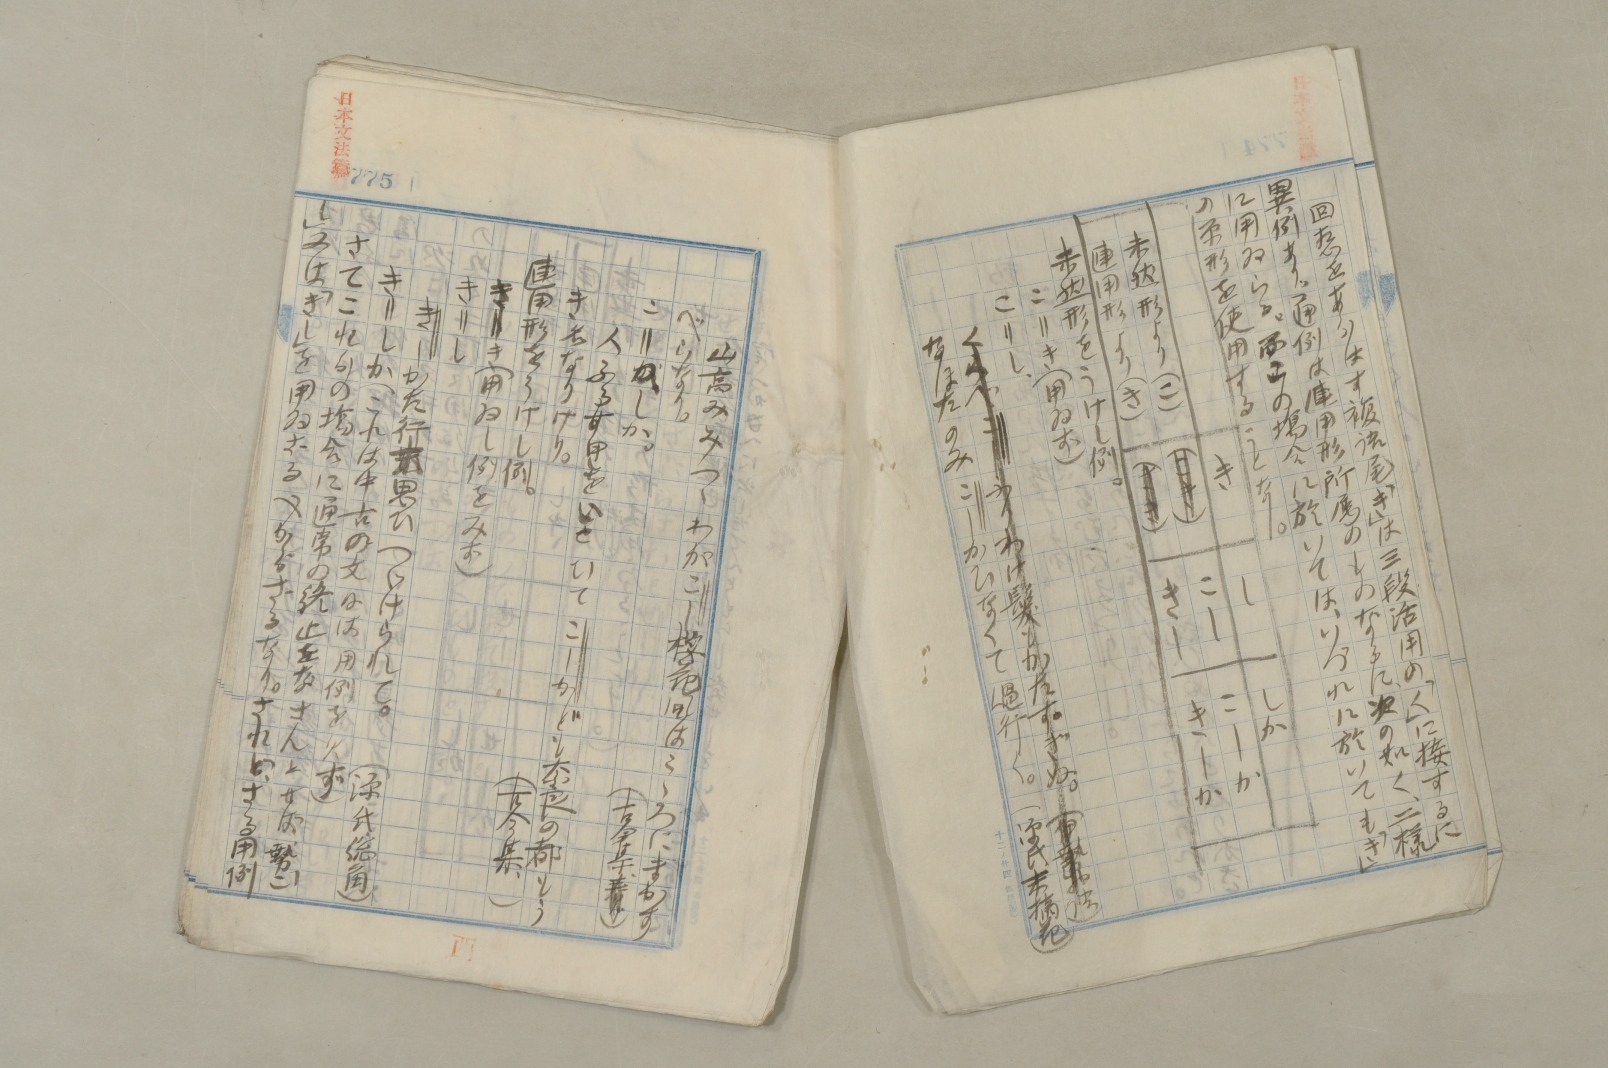 回想をあらはす複語尾「き」は三段活用の「く」に接するに
異例あり。通例は連用形所属のものなるに次の如く、二様
に用ゐらる。而この場合に於いては、いづれに於いても「き」
の原形を使用することなし。
き
し
しか
未然形より(こ)
こーし
こーしか
連用形より(き)
きーし
きーしか
未然形をうけし例。
こ=き(用ゐず)
こ=し、
くらべこしふりわけ髪もかたすぎぬ。
なほたのみこーしかひなくて過行く。(源氏末摘花)
775
日本文法篇
山高みみつゝわがこし桜花風はこゝろにまかす
べらなり。
こ=しか。
人ふるす里をいとひてこーしかども奈良の都もう
きななりけり。(古今集)
連用形をうけし例。
き=き(用ゐし例をみず)
き=し
きーしかた行末思ひつゞけられて。(源氏総角)
き=しか(これは中古の文には用例を欠ず)
さてこれらの場合に通常の終止をなさんとせば
「き」を用ゐざるべからざるなり。されど、さる用例